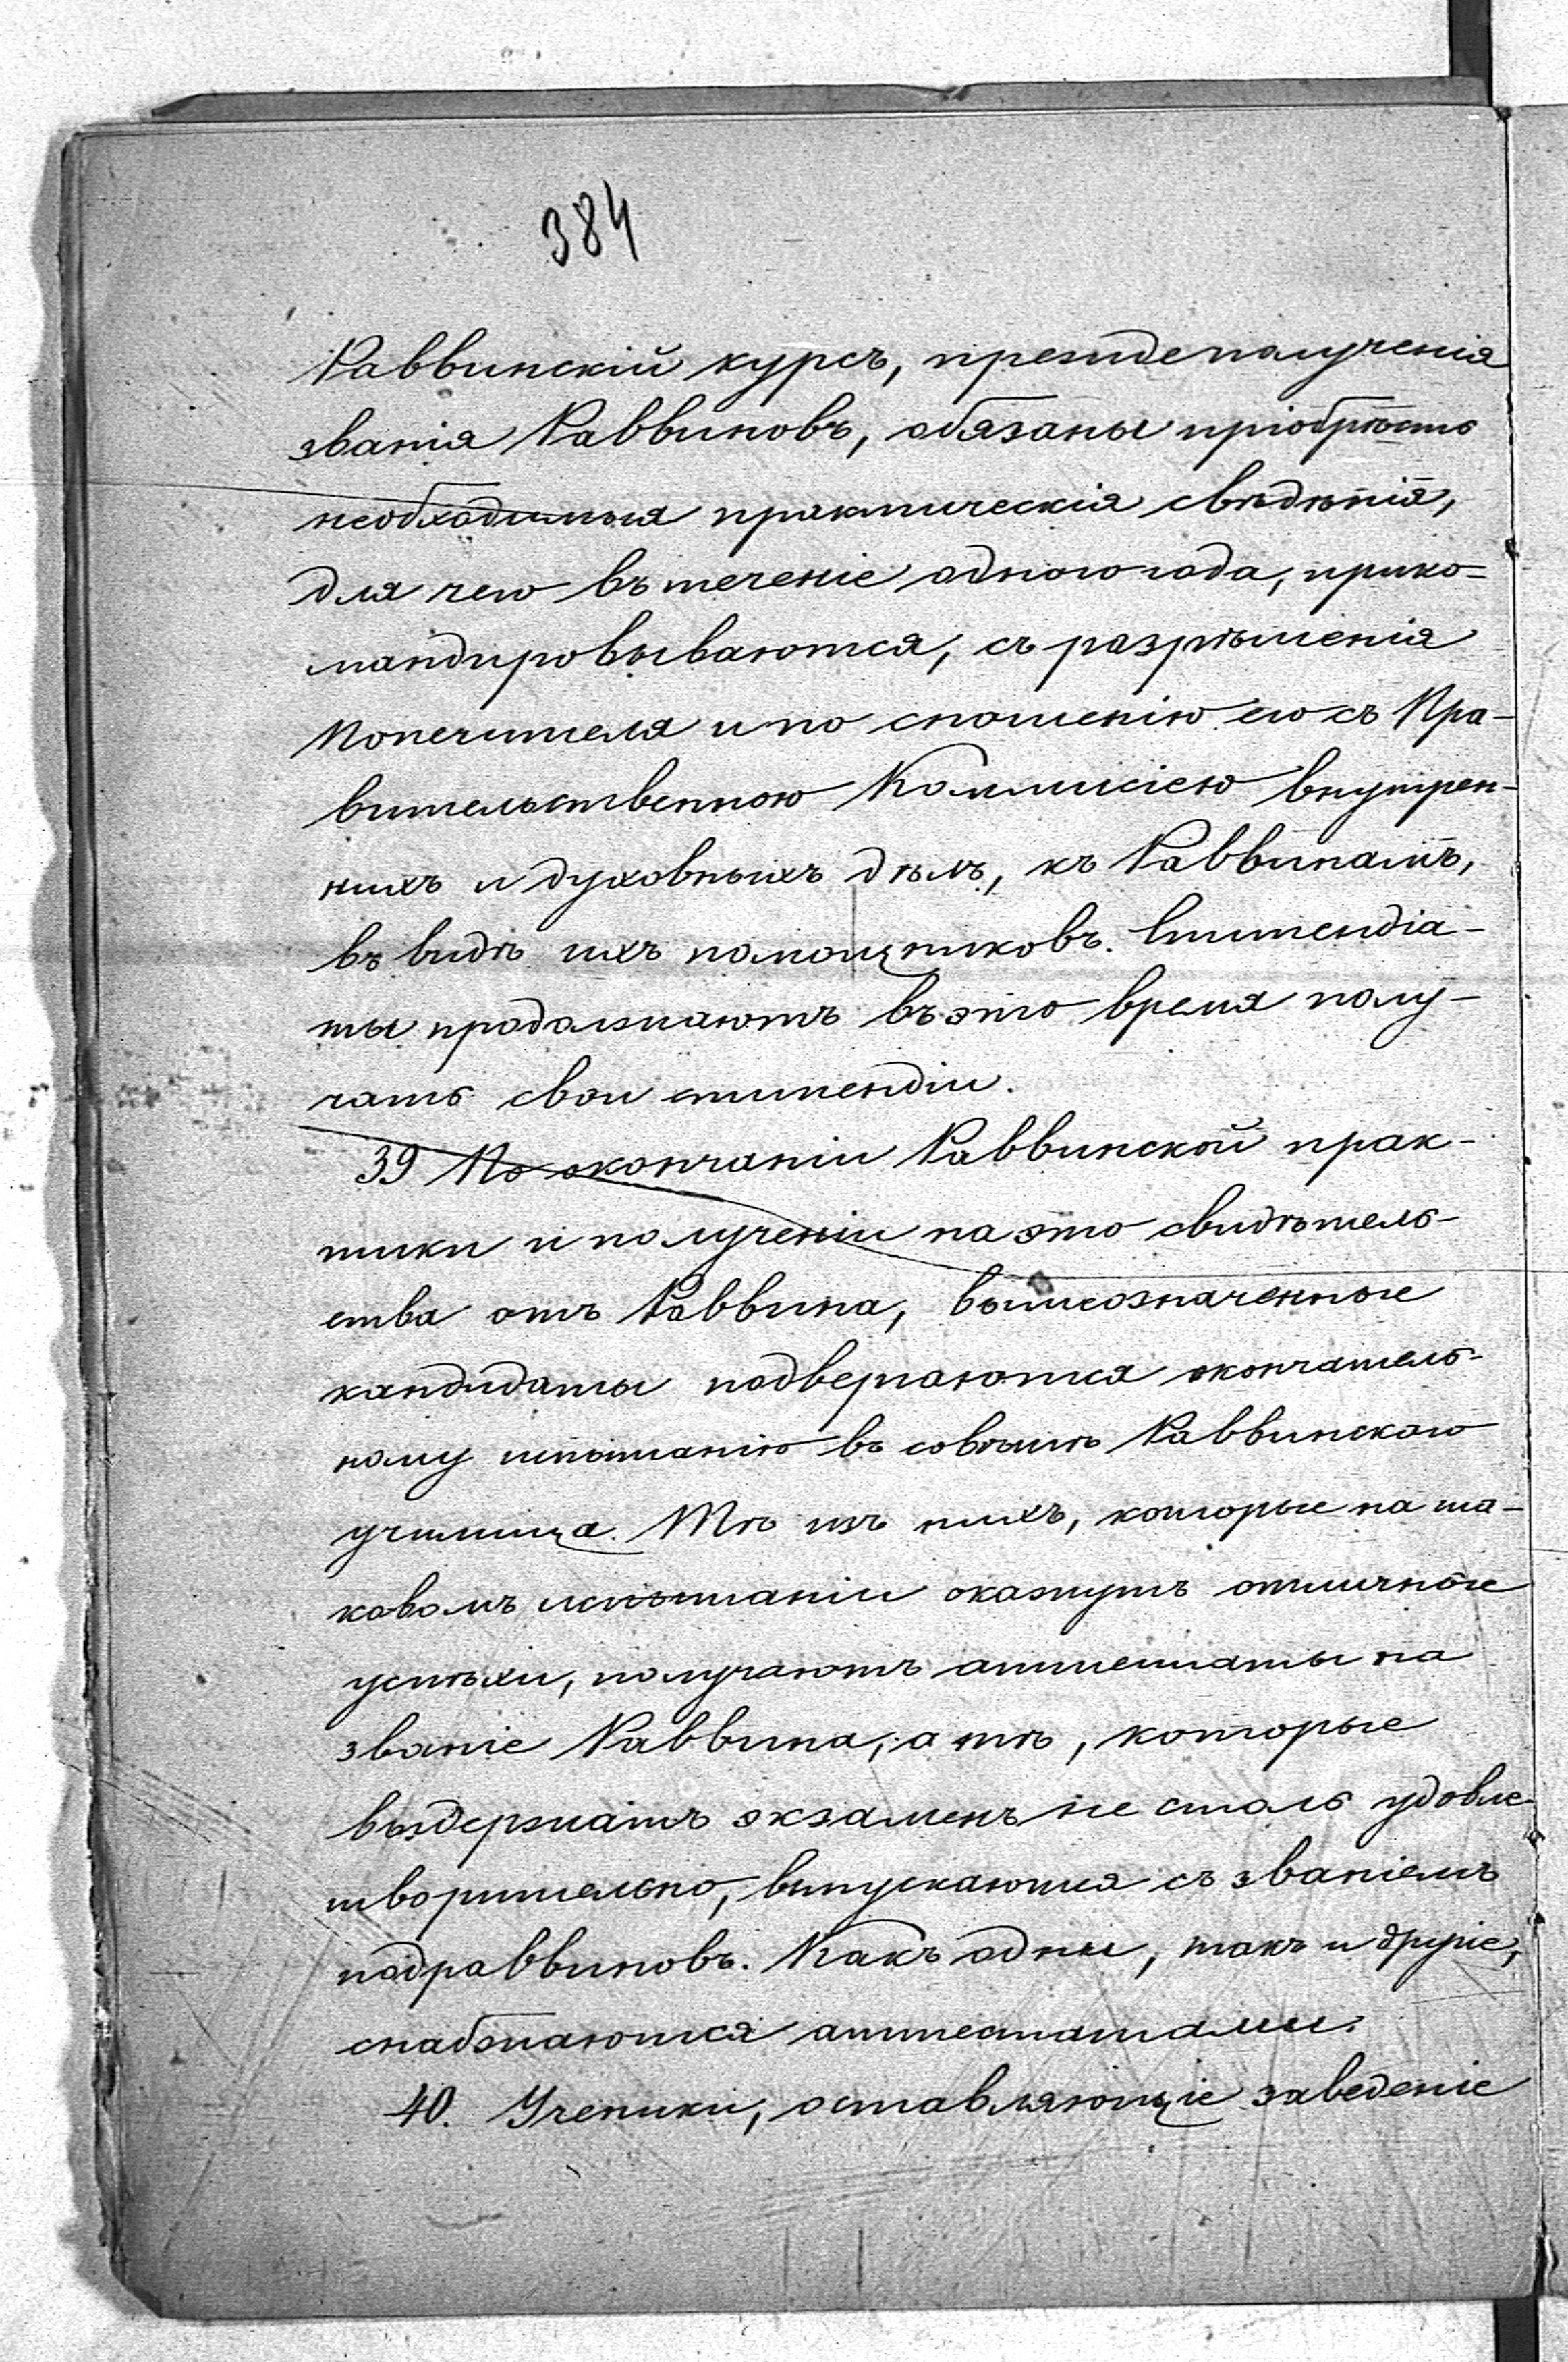 384
Раввинскій курсъ, прежде полученія
званія Раввиновъ, обязаны пріобрѣсть
необходимыя практическія свѣдѣнія,
для чего въ теченіе одного года, прико-
мандировываются, съ разрѣшенія
Попечителя и по сношенію его съ Пра-
вительственною Коммисіею внутрен-
нихъ и духовныхъ дѣлъ, къ Раввинамъ,
въ видѣ ихъ помощниковъ. Стипендіа-
ты продолжаютъ въ это время полу-
чать свои стипендіи.
39 По окончаніи Раввинской прак-
тики и полученіи на это свидѣтель-
ства отъ Раввина, вышеозначенные
кандидаты подвергаются окончатель-
ному испытанію въ совѣтѣ Раввинскаго
училища. Тѣ изъ нихъ, которые на та-
ковомъ испытаніи окажутъ отличные
успѣхи, получаютъ аттестаты на
званіе Раввина, а тѣ, которые
выдержатъ экзаменъ не столь удовле-
творительно, выпускаются съ званіемъ
подраввиновъ. Какъ одни, такъ и другіе,
снабжаются аттестатами.
40. Ученики, оставляющіе заведеніе